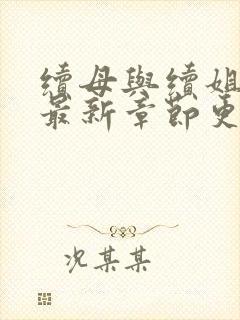 續母與續姐
最新章節更
况某某